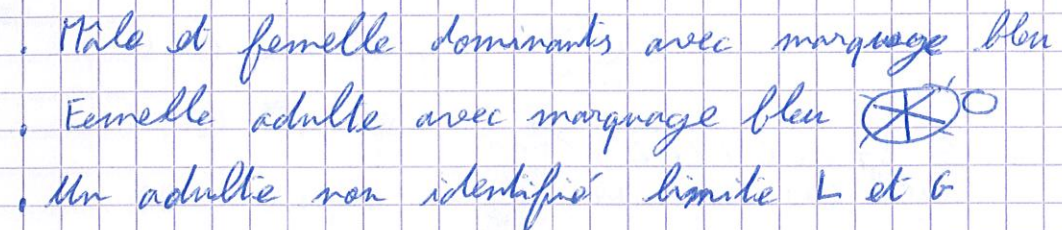 . Mâle et femelle dominants avec marquage bleu
. Femelle adulte avec marquage bleu
. Un adulte non identifié limite L et G